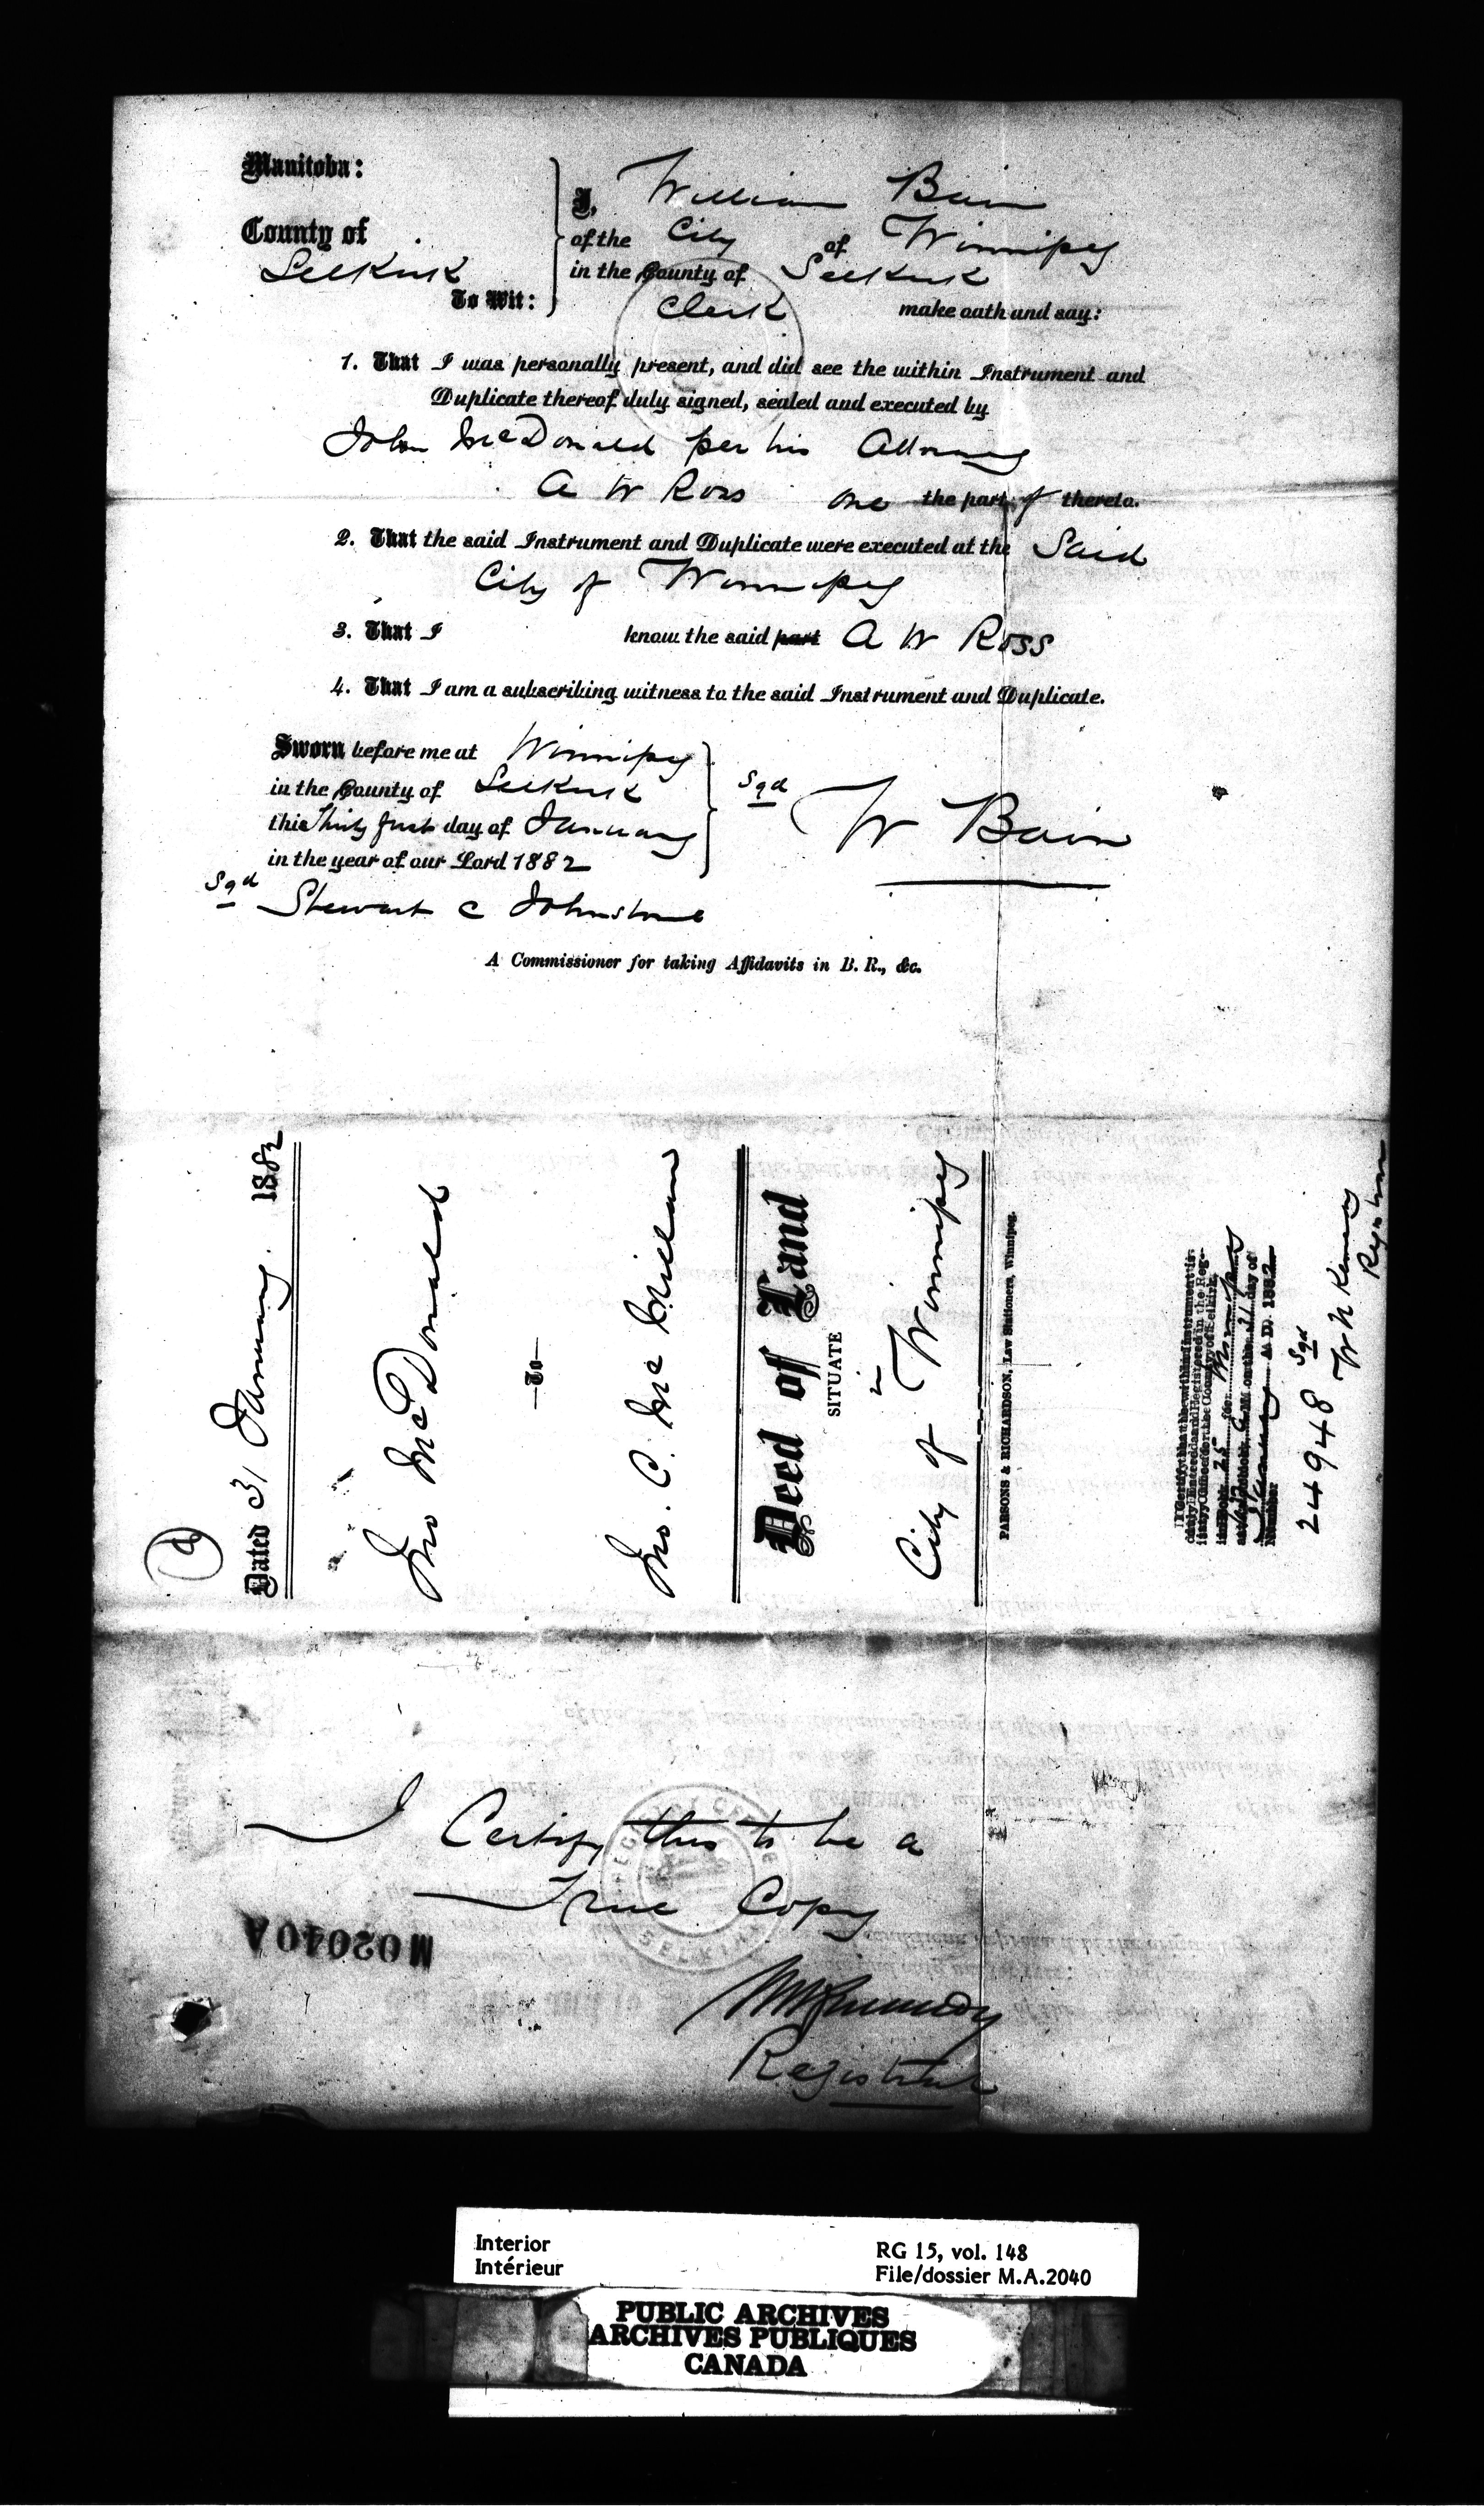 Manitoba:
County of
Selkirk
To Wit:
I, William Bain
of the City of Winnipeg
in the County of Selkirk
Clerk make oath and say:
1. That I was personally present, and did see the within Instrument and
Duplicate thereof duly signed, sealed and executed by
John McDonald per his Attorney
A W Ross one the part of thereto.
2. That the said Instrument and Duplicate were executed at the Said
City of Winnipeg
3. That I know the said part A W Ross
4. That I am a subscribing witness to the said Instrument and Duplicate.
Sworn before me at Winnipeg
in the County of Selkirk
this Thirty first day of January
in the year of our Lord 1882
Sgd W Bain
Sgd Stewart C Johnstone
A Commissioner for taking Affidavits in B. R., &c.
Dated 31 January 1882
Jno McDonald
—To—
Jno. C. McMillan
Deed of Land
SITUATE
in
City of Winnipeg
PARSONS & RICHARDSON, Law Stationers, Winnipeg.
I Certify that the within Instrument is
duly Entered and Registered in the Reg-
istry Office for the County of Selkirk,
in Book 25 for Winnipeg
at o'clock, on the 31 day of
January A. D. 1882
Number
24948 Sgd
W N Kennedy
Registrar
I Certify this to be a
True Copy
REGISTRY OFFICE
SELKIRK
WNKennedy
Registrar
M02040A
Interior
Intérieur
RG 15, vol. 148
File/dossier M.A.2040
PUBLIC ARCHIVES
ARCHIVES PUBLIQUES
CANADA